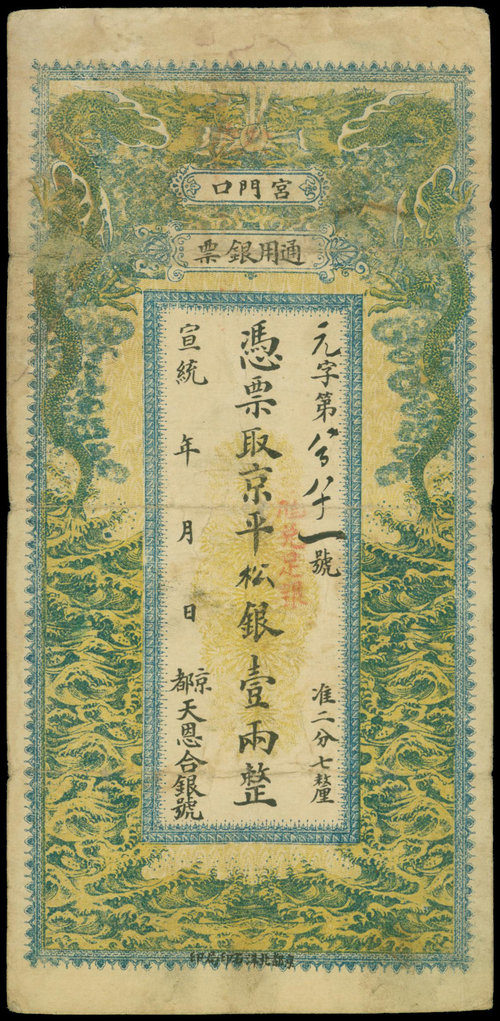 宮門口
通用銀票
元字第 一號
准二分七釐
憑票取京平松銀壹兩整
宣統 年 月 日
京都天恩合銀號
京都北洋石印局印